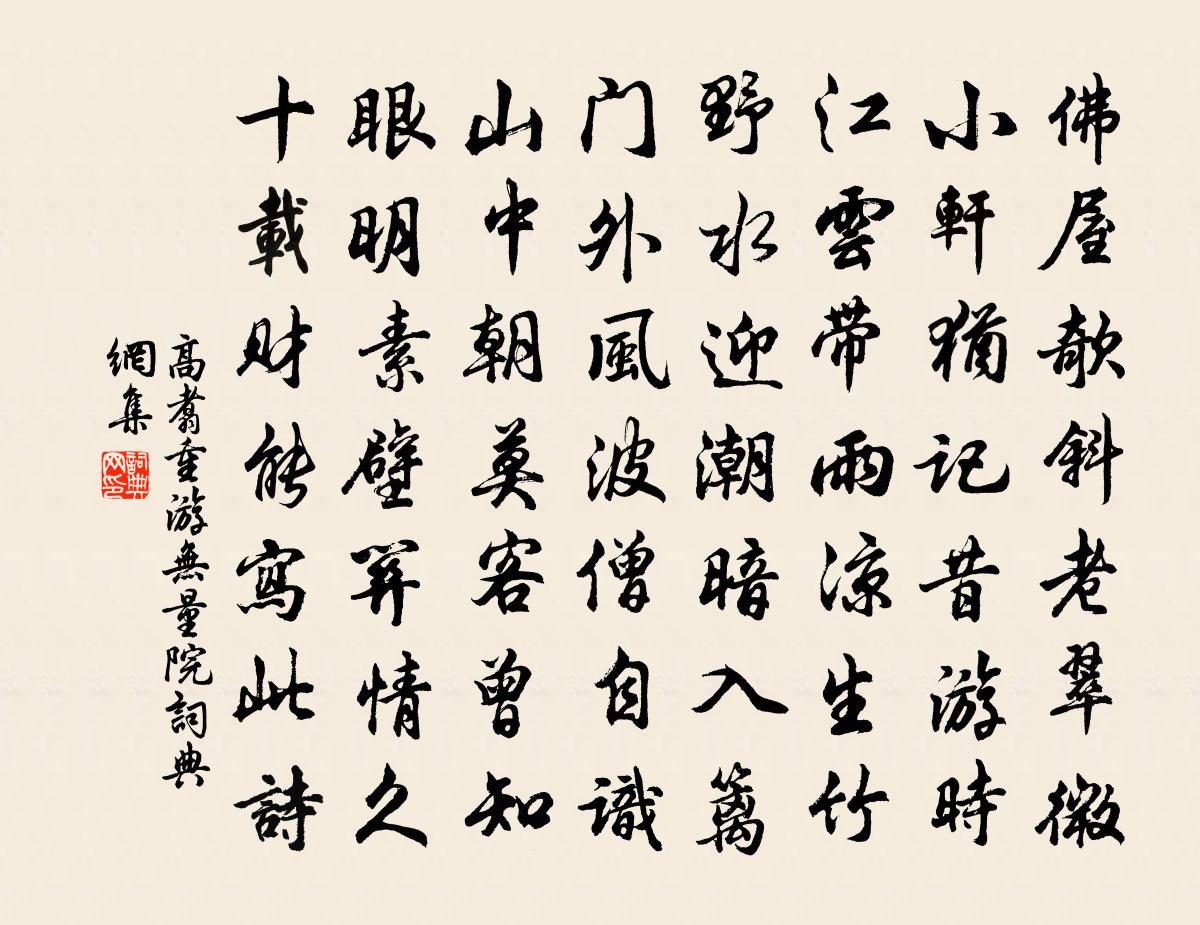 佛屋欹斜老翠微
小軒猶记昔游時
江雲带雨凉生竹
野水迎潮暗入篱
门外風波僧自識
山中朝莫客曾知
眼明素壁關情久
十載财能寫此詩
高翥重游無量院詞典
網集
詞典网印